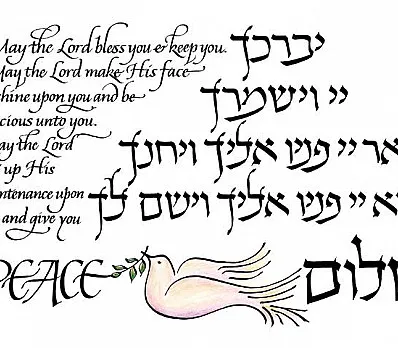 May the Lord bless you & keep you.
May the Lord make His face
shine upon you and be
cious unto you.
ay the Lord
up His
ntenance upon
and give you
PEACE
יברכך
יי וישמרך
אר יי פניו אליך ויחנך
א יי פניו אליך וישם לך
לום